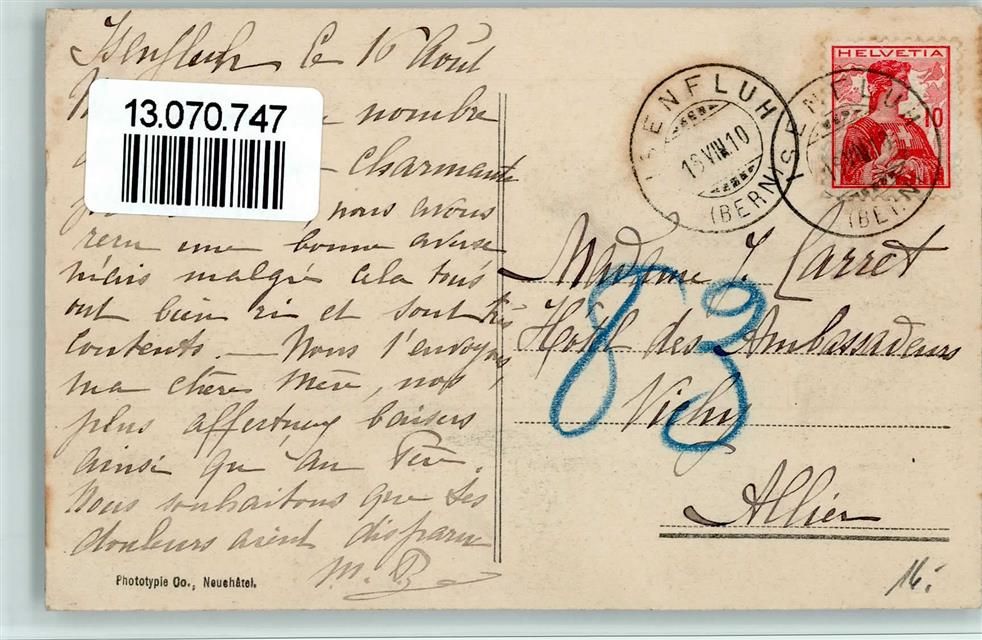 Isenfluh le 16 Août
nombre
13.070.747
charmante
nous avons
reçu une bonne averse
mais malgré cela tous
ont bien ri et sont très
contents. — Nous t'envoyons,
ma chère Mère, nos
plus affectueux baisers
ainsi qu'au Père.
Nous souhaitons que tes
douleurs aient disparu
M.
Phototypie Co., Neuchâtel.
ISENFLUH
16 VIII.10
(BERN)
HELVETIA
10
ISENFLUH
(BERN)
Madame J. Carret
Hôtel des Ambassadeurs
Vichy
Allier
83
16.-